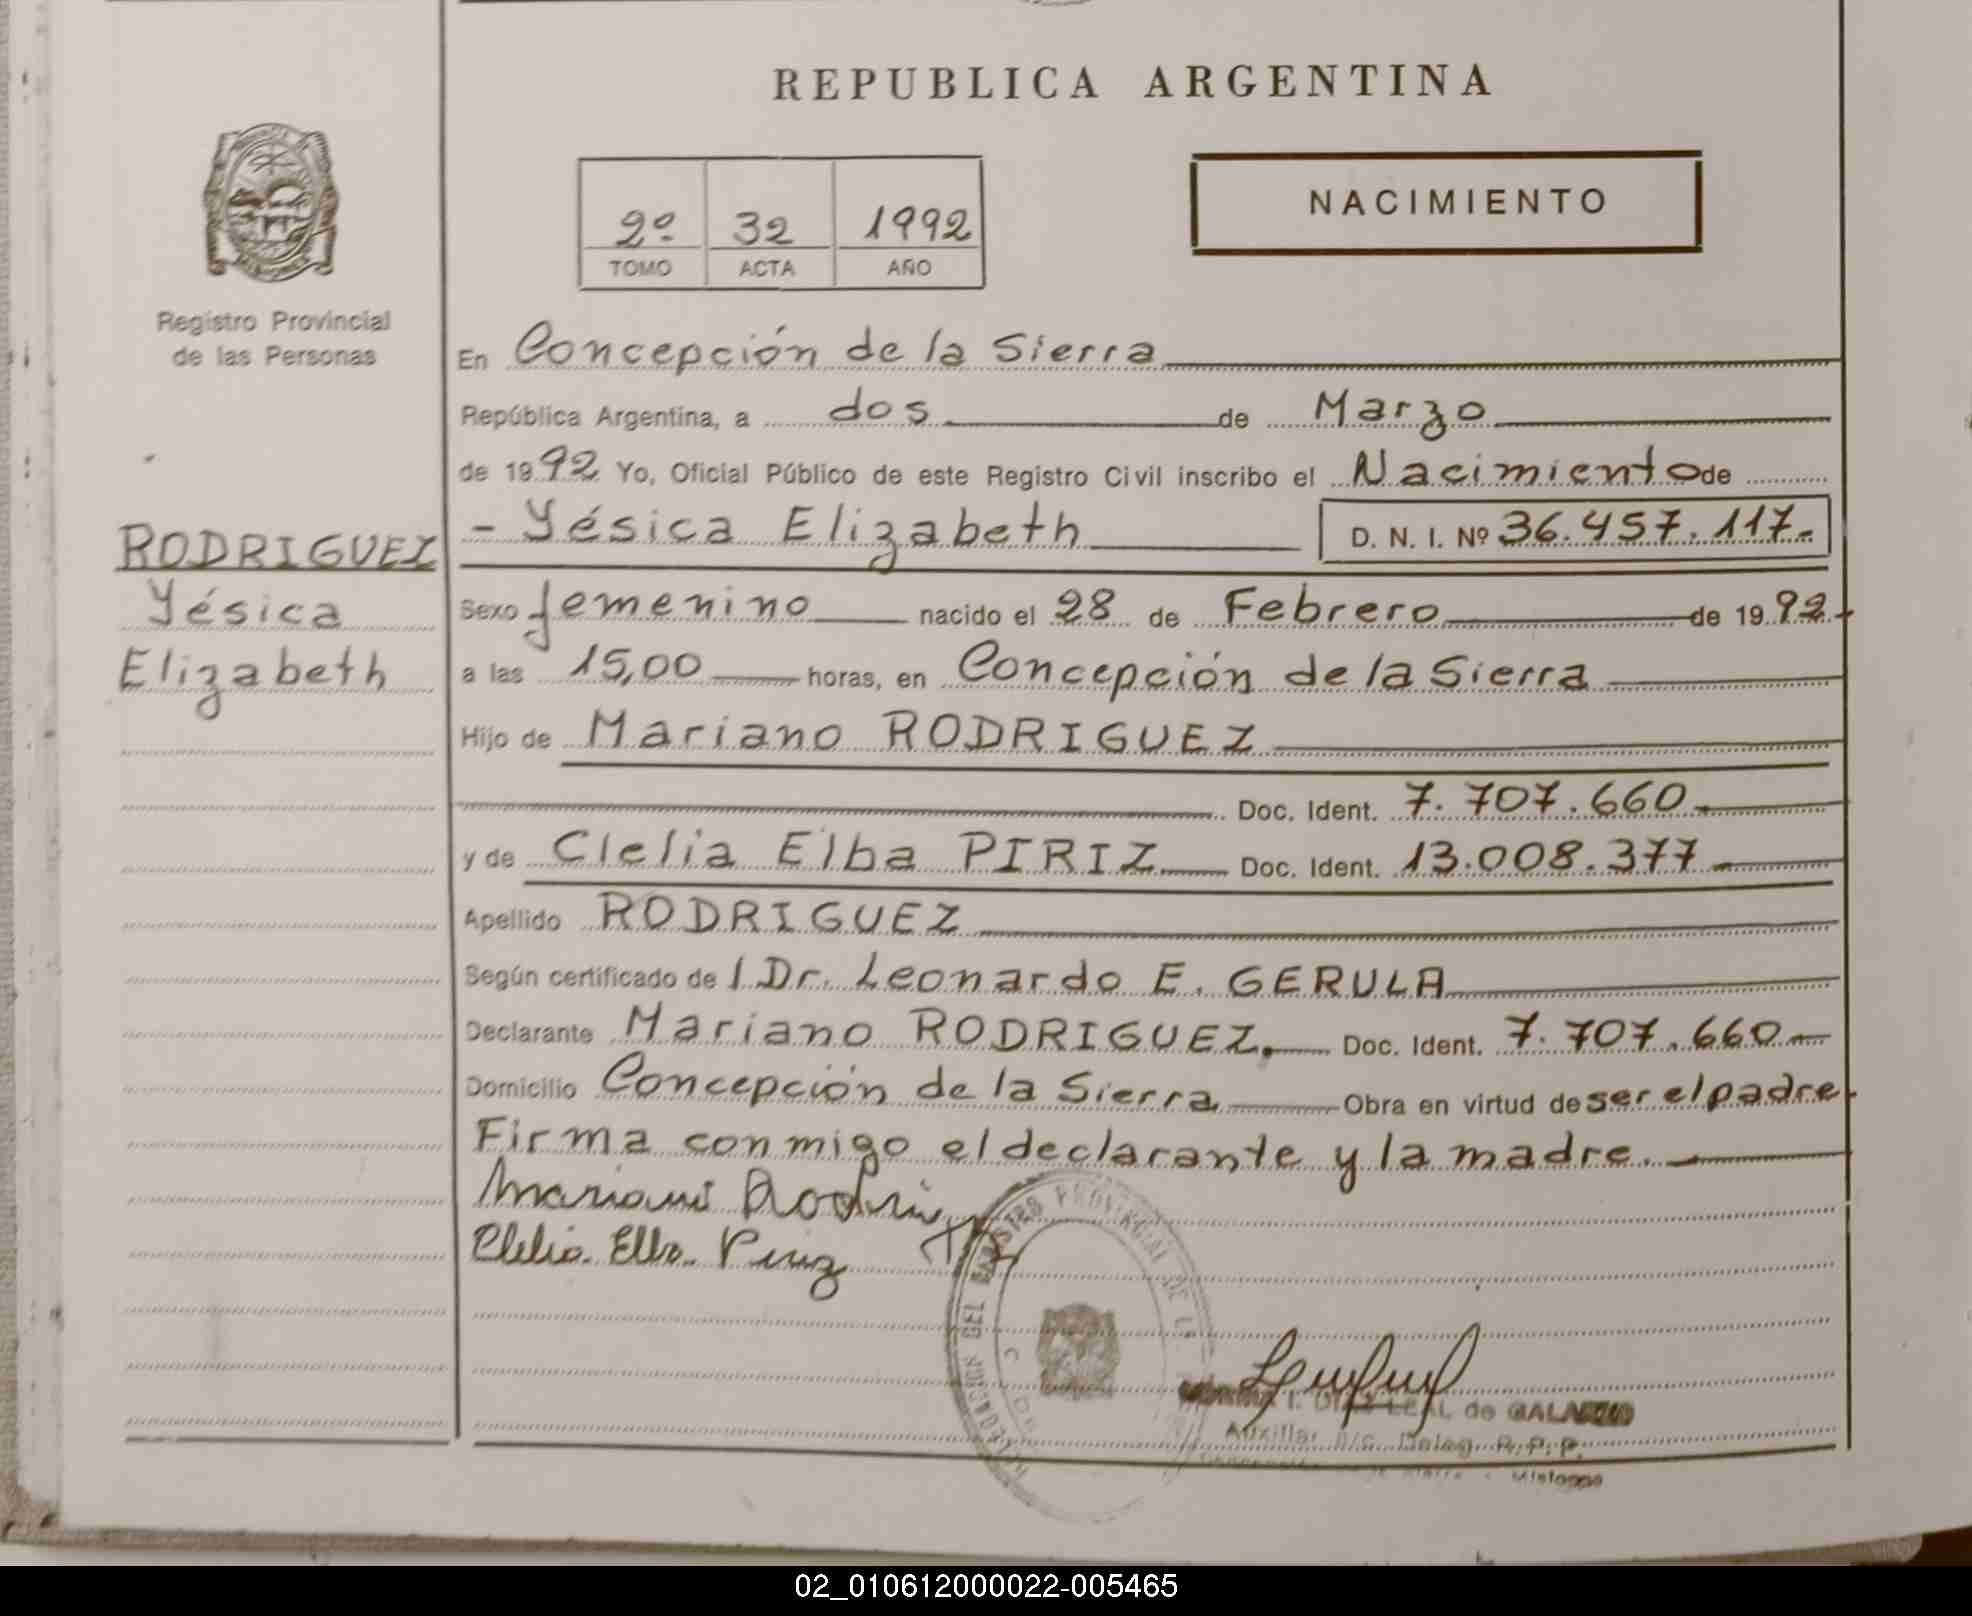 REPUBLICA ARGENTINA
NACIMIENTO
2º 32 1992
TOMO ACTA AÑO
Registro Provincial
de las Personas
En Concepción de la Sierra
República Argentina, a dos de Marzo
de 1992 Yo, Oficial Público de este Registro Civil inscribo el Nacimiento de
- Yésica Elizabeth D. N. I. Nº 36.457.117.-
RODRIGUEZ
Yésica
Elizabeth
Sexo femenino nacido el 28 de Febrero de 1992.-
a las 15,00 horas, en Concepción de la Sierra
Hijo de Mariano RODRIGUEZ
Doc. Ident. 7.707.660.-
y de Clelia Elba PIRIZ Doc. Ident. 13.008.377.-
Apellido RODRIGUEZ
Según certificado de l Dr. Leonardo E. GERULA
Declarante Mariano RODRIGUEZ. Doc. Ident. 7.707.660.-
Domicilio Concepción de la Sierra Obra en virtud de ser el padre.
Firma conmigo el declarante y la madre.
Mariano Rodri
Clelia Elba Piriz
REGISTRO PROVINCIAL DE L
DELEGACION DEL
I. DIAZ LEAL de GALARZO
Auxiliar A/C. Deleg. R.P.P.
Misiones
02_010612000022-005465